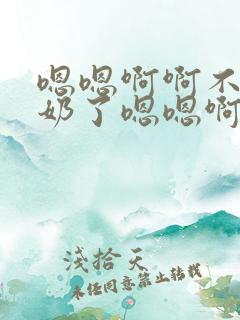 嗯嗯啊啊不
奶了嗯嗯啊
淺拾天
未经同意禁止转载